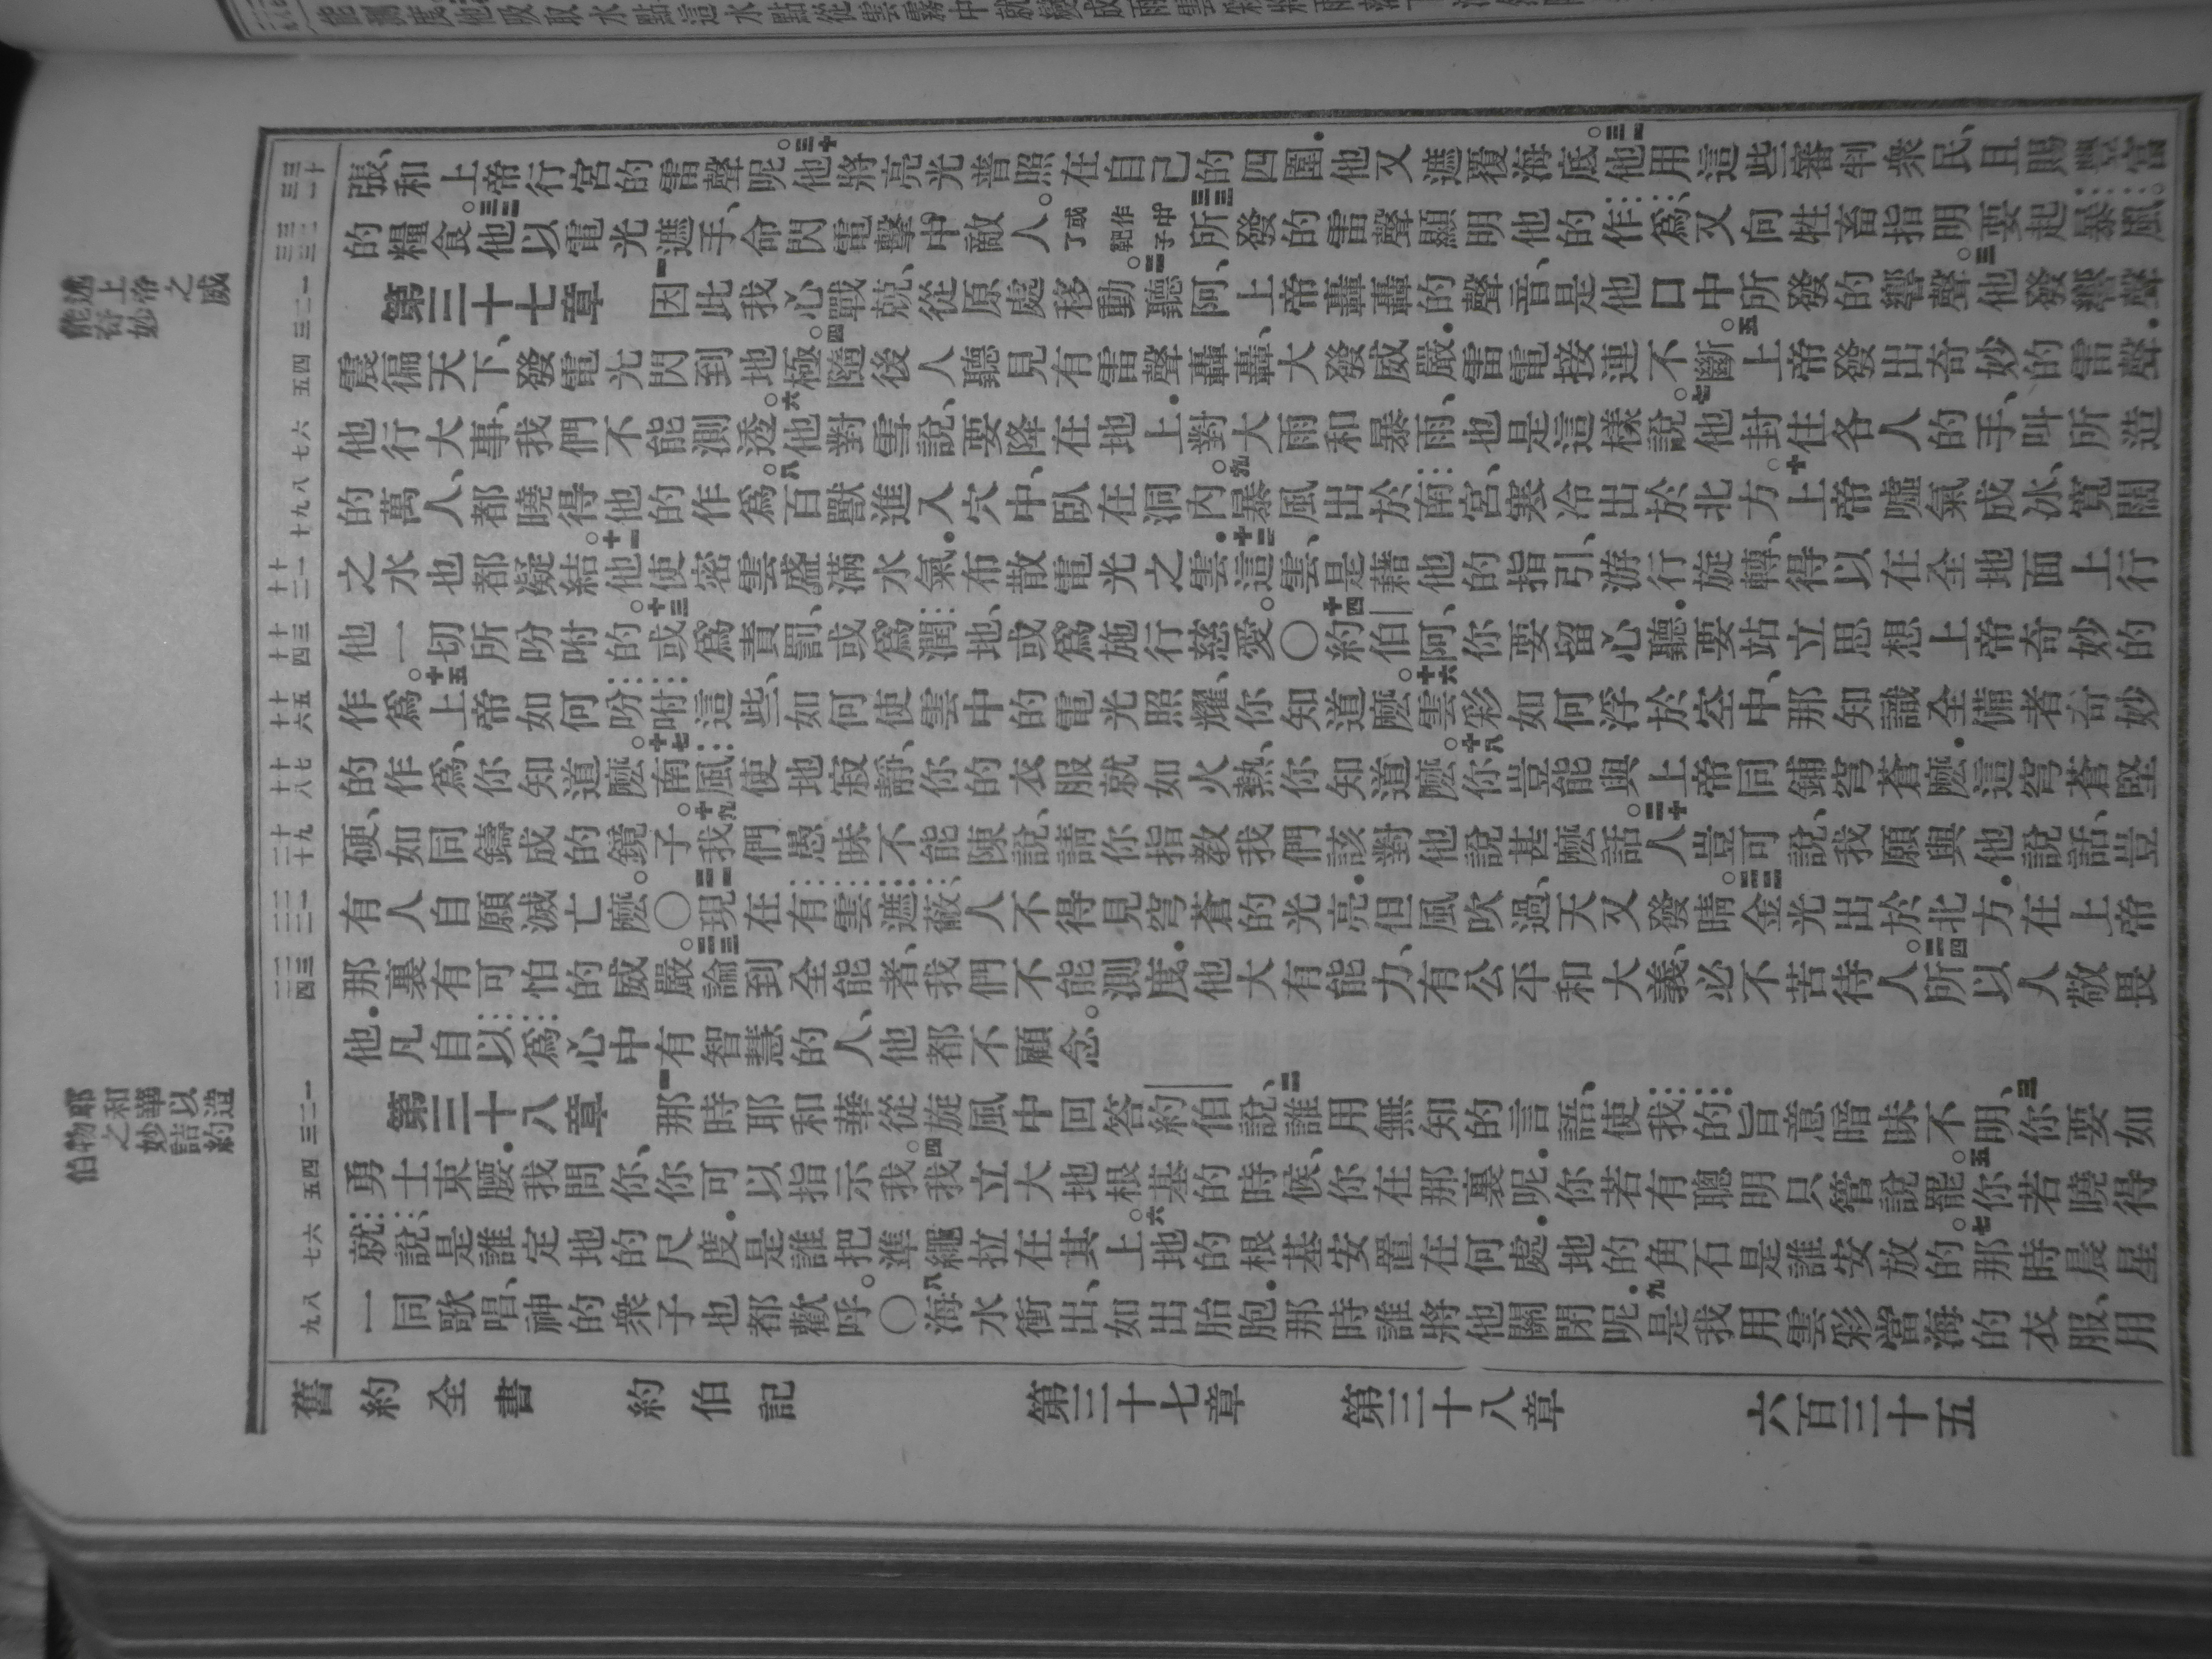 張、和上帝行宮的雷聲呢。三十他將亮光普照在自己的四圍．他又遮覆海底。三一他用這些審判衆民、且賜豐富
的糧食。三二他以電光遮手、命閃電擊中敵人。或作中了靶子三三所發的雷聲顯明他的作爲、又向牲畜指明要起暴風。
第三十七章 一因此我心戰兢、從原處移動。二聽阿、上帝轟轟的聲音、是他口中所發的響聲。三他發響聲
震徧天下、發電光閃到地極。四隨後人聽見有雷聲轟轟、大發威嚴．雷電接連不斷。五上帝發出奇妙的雷聲．
他行大事、我們不能測透。六他對雪說、要降在地上．對大雨和暴雨、也是這樣說。七他封住各人的手、叫所造
的萬人、都曉得他的作爲。八百獸進入穴中、臥在洞內。九暴風出於南宮、寒冷出於北方。十上帝噓氣成冰、寬闊
之水也都凝結。十一他使密雲盛滿水氣．布散電光之雲．十二這雲、是藉他的指引、游行旋轉、得以在全地面上行
他一切所吩咐的。十三或爲責罰、或爲潤地、或爲施行慈愛。〇十四約伯阿、你要留心聽．要站立思想上帝奇妙的
作爲。十五上帝如何吩咐這些、如何使雲中的電光照耀、你知道麼。十六雲彩如何浮於空中、那知識全備者奇妙
的作爲、你知道麼。十七南風使地寂靜、你的衣服就如火熱、你知道麼。十八你豈能與上帝同鋪穹蒼麼．這穹蒼堅
硬、如同鑄成的鏡子。十九我們愚昧不能陳說、請你指教我們該對他說甚麼話。二十人豈可說、我願與他說話、豈
有人自願滅亡麼。〇二一現在有雲遮蔽、人不得見穹蒼的光亮．但風吹過、天又發晴。二二金光出於北方．在上帝
那裏有可怕的威嚴。二三論到全能者、我們不能測度．他大有能力、有公平和大義、必不苦待人。二四所以人敬畏
他．凡自以爲心中有智慧的人、他都不顧念。
第三十八章 一那時耶和華從旋風中回答約伯說、二誰用無知的言語、使我的旨意暗昧不明、三你要如
勇士束腰．我問你、你可以指示我。四我立大地根基的時候、你在那裏呢．你若有聰明只管說罷。五你若曉得
就說、是誰定地的尺度．是誰把準繩拉在其上。六地的根基安置在何處．地的角石是誰安放的。七那時晨星
一同歌唱、神的衆子也都歡呼。〇八海水衝出、如出胎胞．那時誰將他關閉呢．九是我用雲彩當海的衣服、用
舊約全書 約伯記 第三十七章 第三十八章 六百三十五
述上帝之威
能奇妙
耶和華以造
物之妙詰約
伯